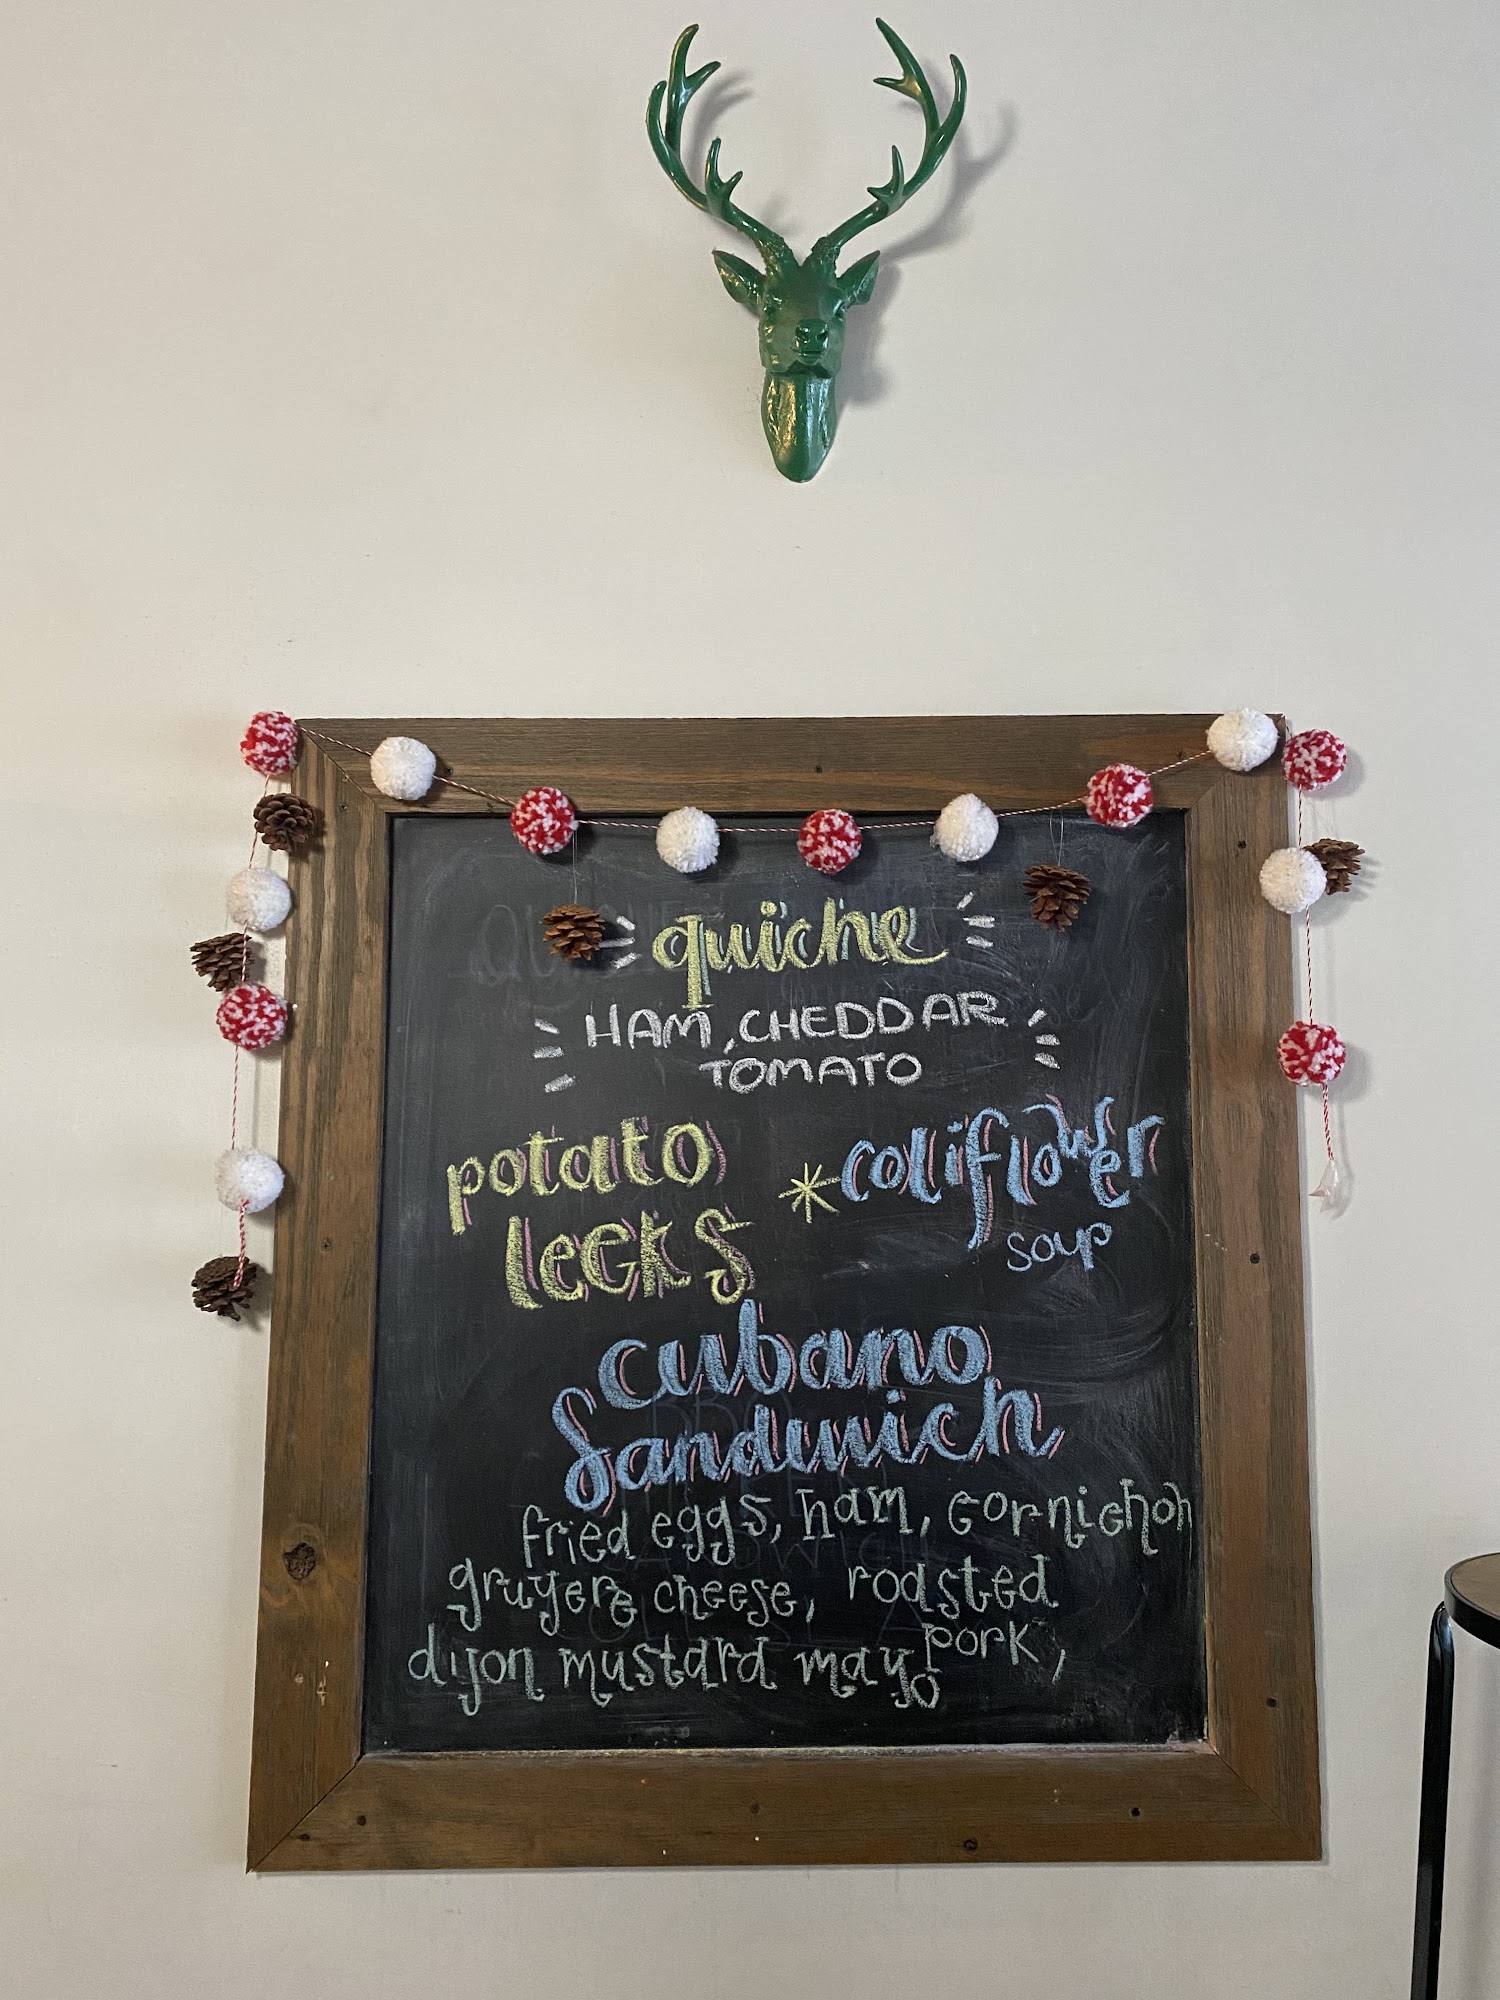 quiche
HAM, CHEDDAR
TOMATO
potato
leeks
*coliflower
soup
cubano
Sandwich
fried eggs, ham, cornichon
gruyere cheese, roasted
pork,
dijon mustard mayo